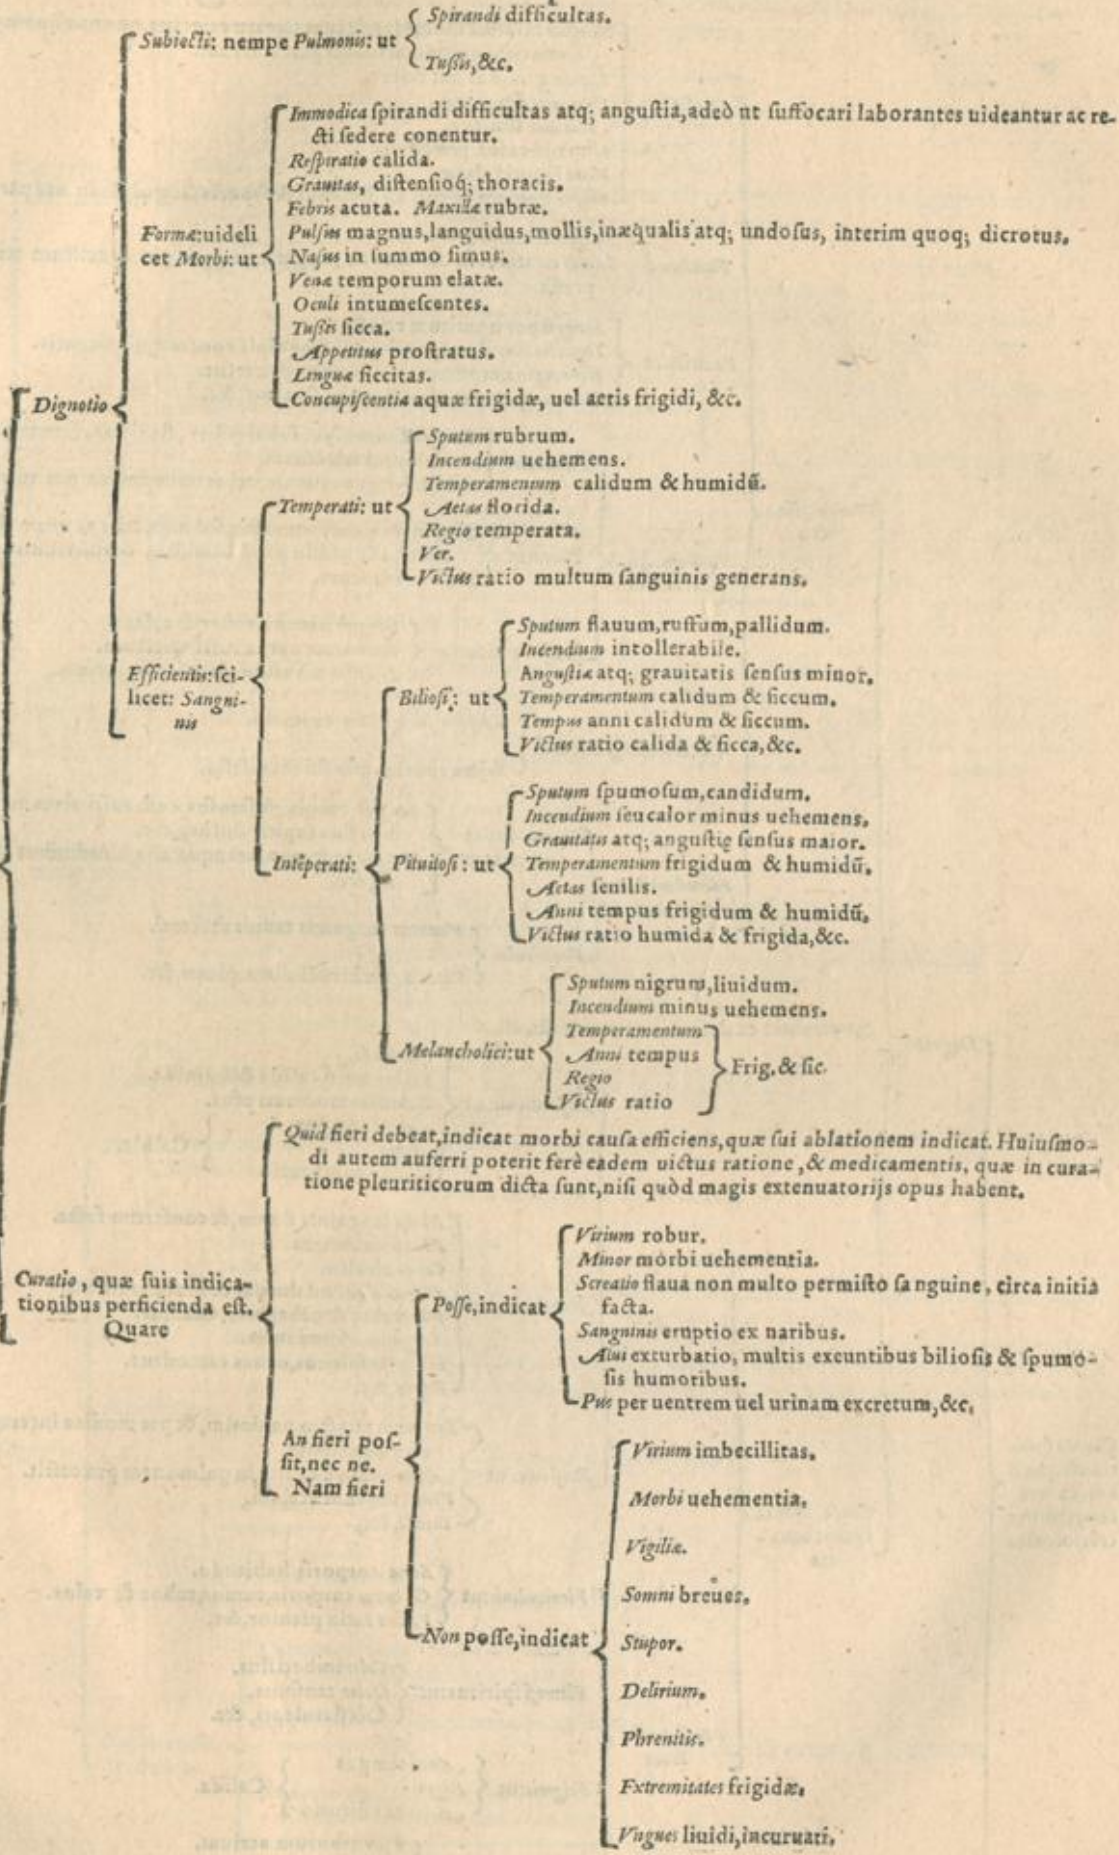 Spirandi difficultas.
Subiecti: nempe Pulmonis: ut
Tussis, &c.
Immodica spirandi difficultas atq; angustia, adeò ut suffocari laborantes uideantur ac re-
cti sedere conentur.
Respiratio calida.
Grauitas, distensioq́; thoracis.
Febris acuta. Maxillæ rubræ.
Formæ: uideli
cet Morbi: ut
Pulsus magnus, languidus, mollis, inæqualis atq; undosus, interim quoq; dicrotus.
Nasus in summo simus.
Venæ temporum elatæ.
Oculi intumescentes.
Tussis sicca.
Appetitus prostratus.
Linguæ siccitas.
Concupiscentia aquæ frigidæ, uel aeris frigidi, &c.
Dignotio
Sputum rubrum.
Incendium uehemens.
Temperamentum calidum & humidũ.
Temperati: ut
Aetas florida.
Regio temperata.
Ver.
Victus ratio multum sanguinis generans.
Efficientis: sci-
licet: Sangui-
nis
Sputum flauum, ruffum, pallidum.
Incendium intollerabile.
Angustiæ atq; grauitatis sensus minor.
Biliosi: ut
Temperamentum calidum & siccum.
Tempus anni calidum & siccum.
Victus ratio calida & sicca, &c.
Intẽperati:
Sputum spumosum, candidum.
Incendium seu calor minus uehemens.
Grauitatis atq; angustię sensus maior.
Pituitosi: ut
Temperamentum frigidum & humidũ.
Aetas senilis.
Anni tempus frigidum & humidũ.
Victus ratio humida & frigida, &c.
Sputum nigrum, liuidum.
Incendium minus uehemens.
Melancholici: ut
Temperamentum
Anni tempus
Regio
Victus ratio
Frig. & sic.
Quid fieri debeat, indicat morbi causa efficiens, quæ sui ablationem indicat. Huiusmo-
di autem auferri poterit ferè eadem uictus ratione, & medicamentis, quæ in cura-
tione pleuriticorum dicta sunt, nisi quòd magis extenuatorijs opus habent.
Curatio, quæ suis indica-
tionibus perficienda est.
Quare
Virium robur.
Minor morbi uehementia.
Posse, indicat
Screatio flaua non multo permisto sanguine, circa initia
facta.
Sanguinis eruptio ex naribus.
Alui exturbatio, multis exeuntibus biliosis & spumo-
sis humoribus.
Pus per uentrem uel urinam excretum, &c.
An fieri pos-
sit, nec ne.
Nam fieri
Virium imbecillitas.
Morbi uehementia.
Vigiliæ.
Somni breues.
Non posse, indicat
Stupor.
Delirium.
Phrenitis.
Extremitates frigidæ.
Vngues liuidi, incuruati.